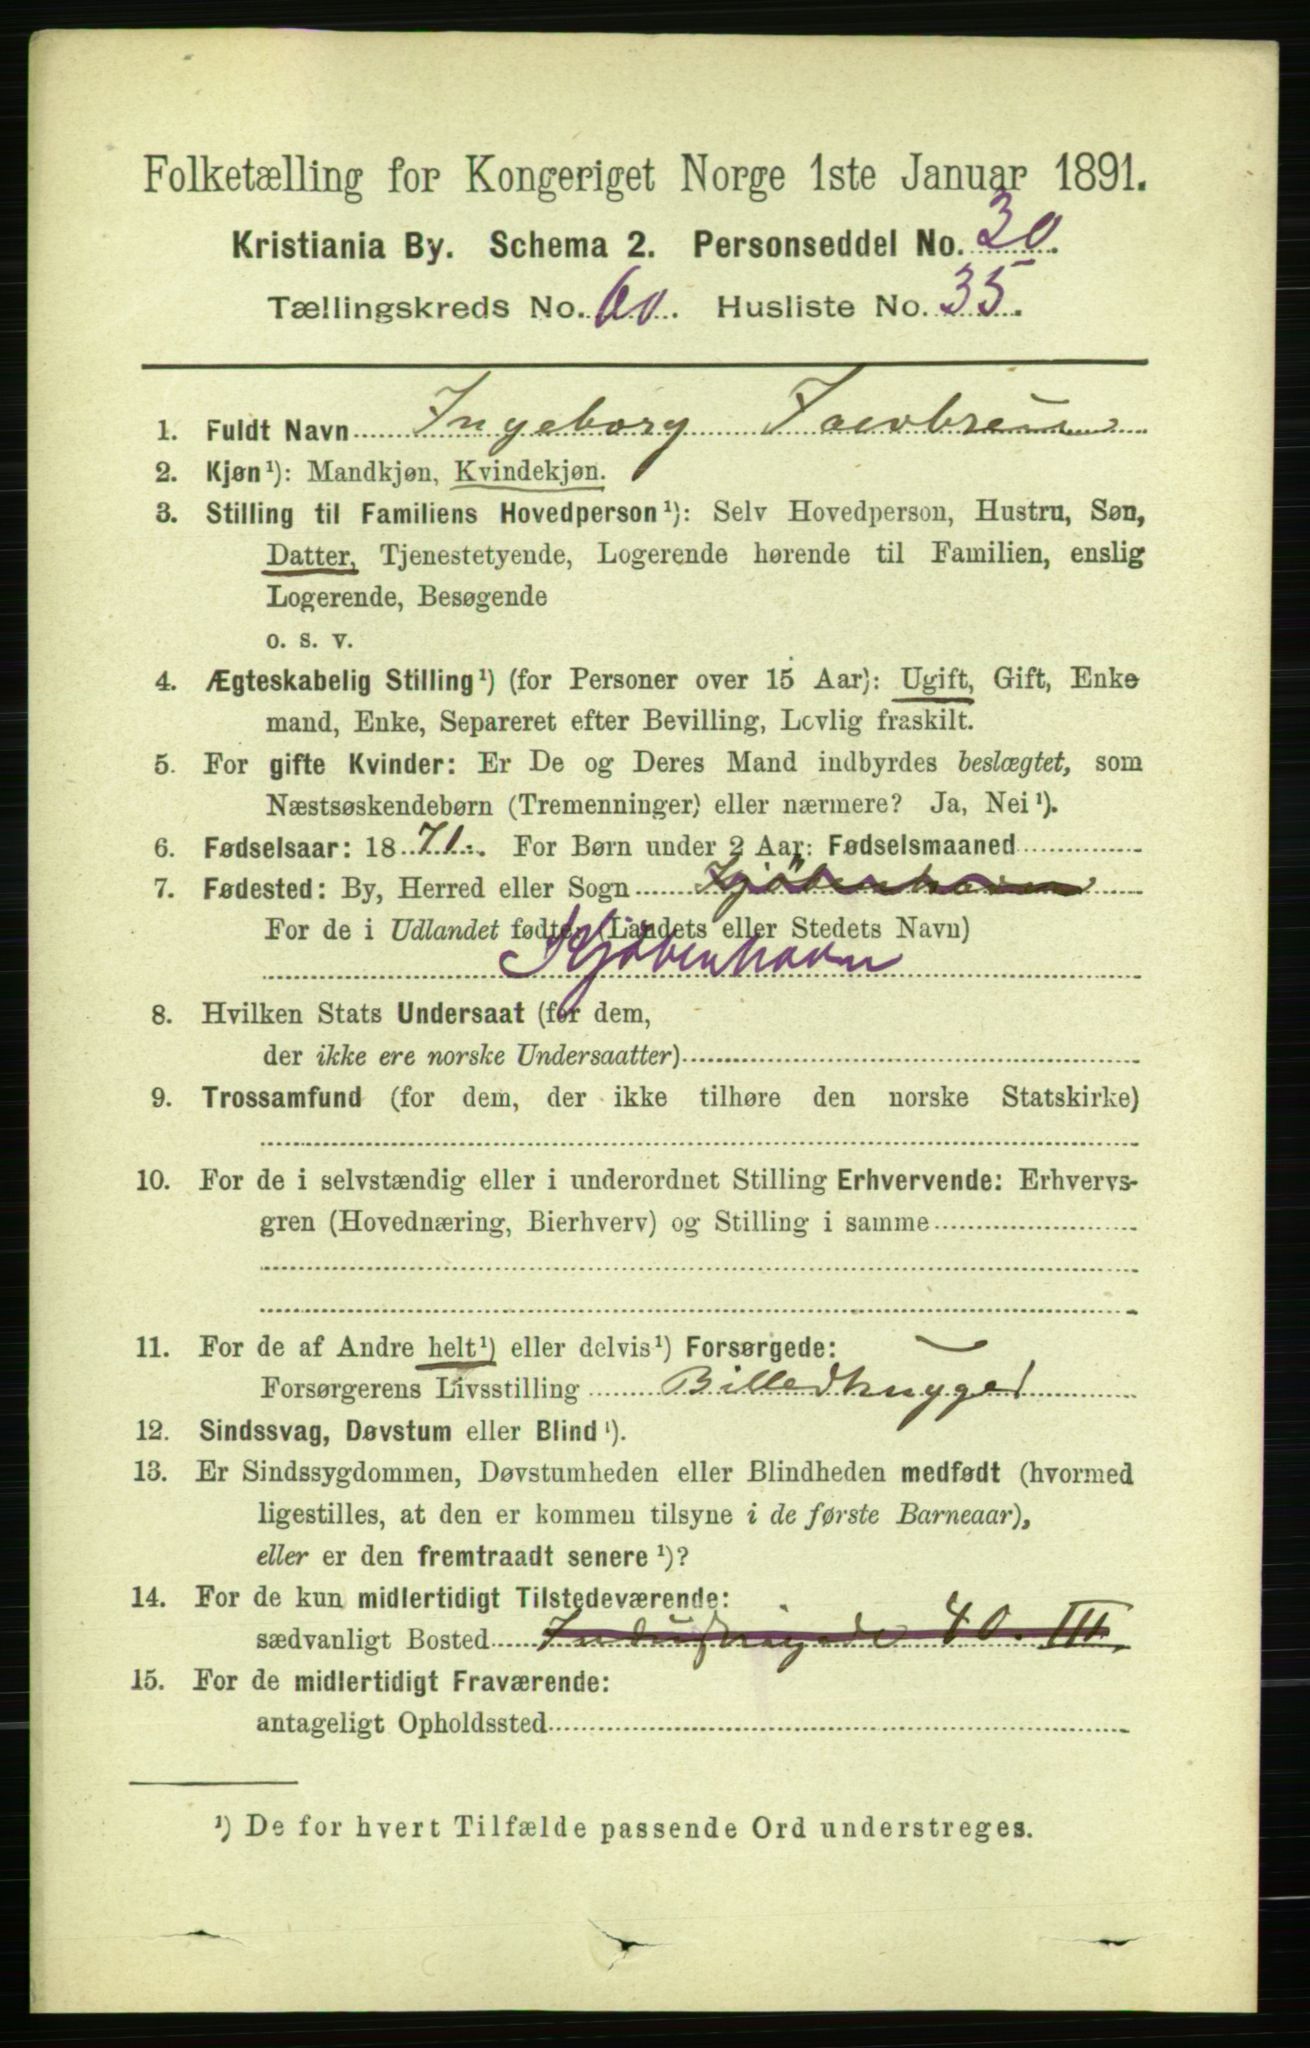 Folketælling for Kongeriget Norge 1ste Januar 1891.
Kristiania By. Schema 2. Personseddel No. 30.
Tællingskreds No. 60. Husliste No. 35.
1. Fuldt Navn Ingeborg Jacobsen
2. Kjøn¹): Mandkjøn, Kvindekjøn.
3. Stilling til Familiens Hovedperson¹): Selv Hovedperson, Hustru, Søn,
Datter, Tjenestetyende, Logerende hørende til Familien, enslig
Logerende, Besøgende
o. s. v.
4. Ægteskabelig Stilling¹) (for Personer over 15 Aar): Ugift, Gift, Enke
mand, Enke, Separeret efter Bevilling, Lovlig fraskilt.
5. For gifte Kvinder: Er De og Deres Mand indbyrdes beslægtet, som
Næstsøskendebørn (Tremenninger) eller nærmere? Ja, Nei¹).
6. Fødselsaar: 1871. For Børn under 2 Aar: Fødselsmaaned
7. Fødested: By, Herred eller Sogn Kjöbenhavn
For de i Udlandet fødte: (Landets eller Stedets Navn)
Kjöbenhavn
8. Hvilken Stats Undersaat (for dem,
der ikke ere norske Undersaatter)
9. Trossamfund (for dem, der ikke tilhøre den norske Statskirke)
10. For de i selvstændig eller i underordnet Stilling Erhvervende: Erhvervs-
gren (Hovednæring, Bierhverv) og Stilling i samme
11. For de af Andre helt¹) eller delvis¹) Forsørgede:
Forsørgerens Livsstilling Billedhugger
12. Sindssvag, Døvstum eller Blind¹).
13. Er Sindssygdommen, Døvstumheden eller Blindheden medfødt (hvormed
ligestilles, at den er kommen tilsyne i de første Barneaar),
eller er den fremtraadt senere¹)?
14. For de kun midlertidigt Tilstedeværende:
sædvanligt Bosted Industrigade 40. III.
15. For de midlertidigt Fraværende:
antageligt Opholdssted
¹) De for hvert Tilfælde passende Ord understreges.